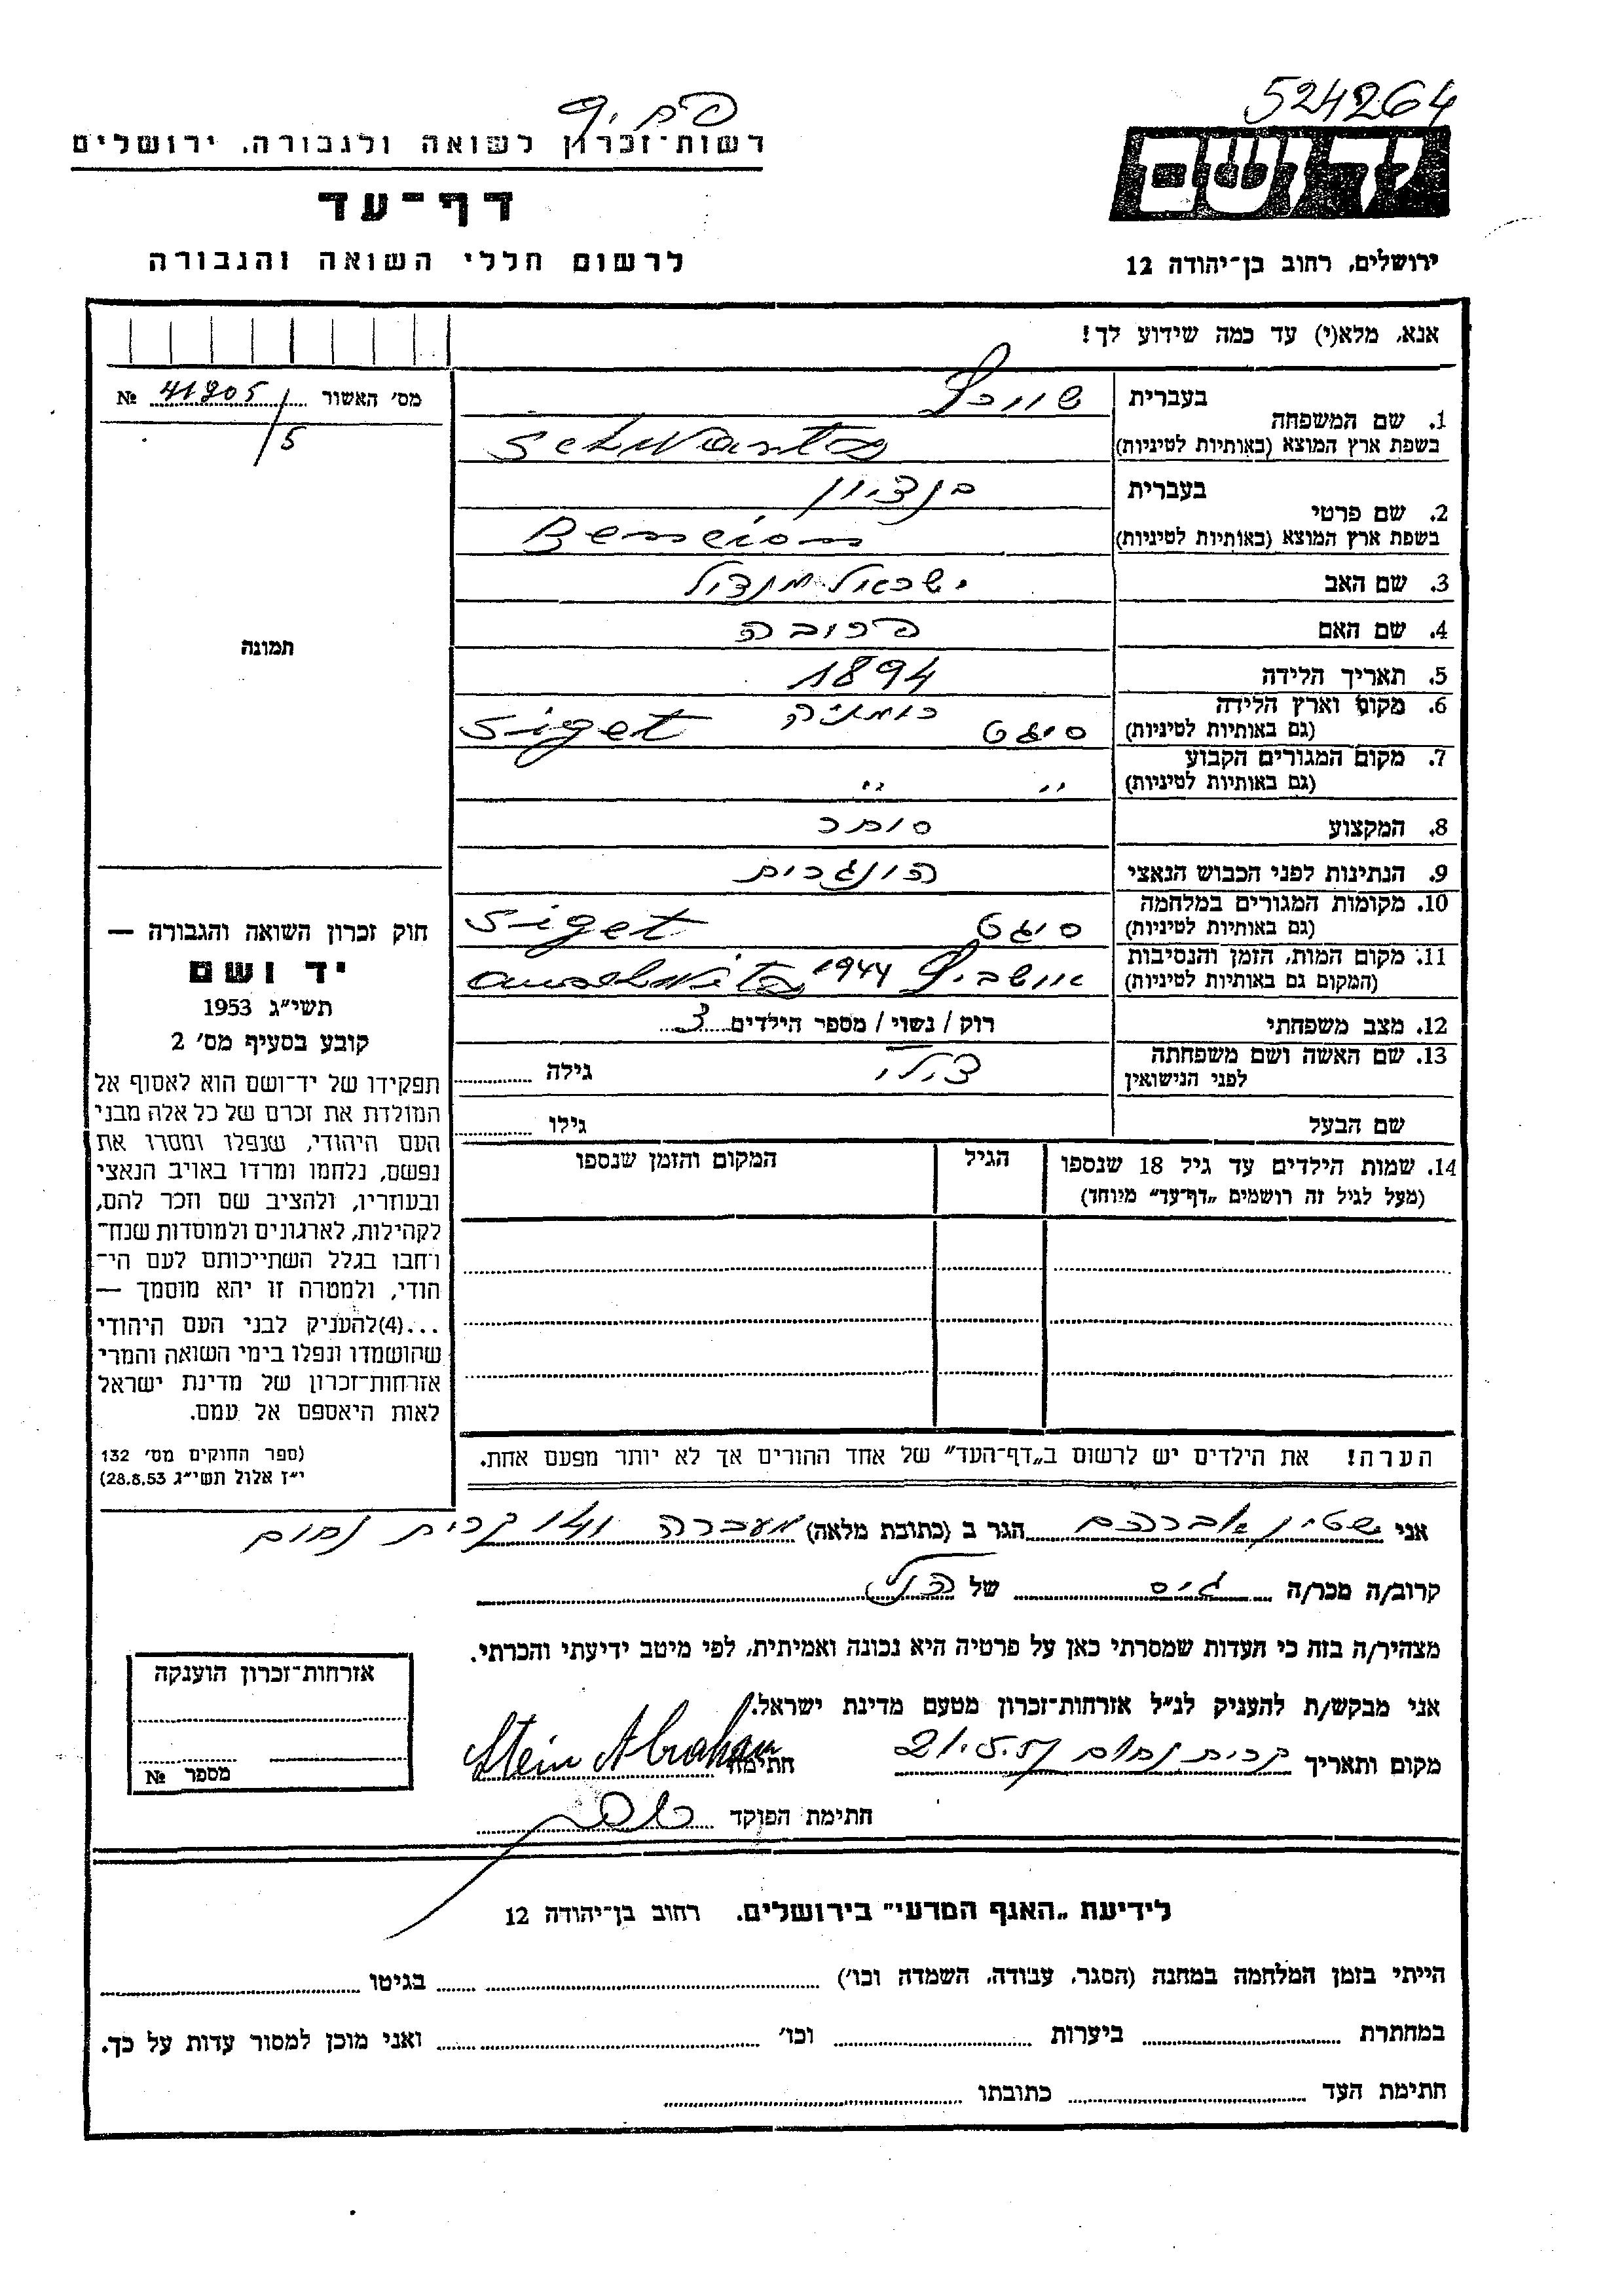 524264
יד ושם
רשות-זכרון לשואה ולגבורה, ירושלים
דף-עד
לרשום חללי השואה והגבורה
ירושלים, רחוב בן-יהודה 12
אנא, מלא(י) עד כמה שידוע לך!
מס׳ האשור № 41905/5
תמונה
1. שם המשפחה
בעברית שוורץ
בשפת ארץ המוצא (באותיות לטיניות) Schwartz
2. שם פרטי
בעברית בנציון
בשפת ארץ המוצא (באותיות לטיניות) Bencion
3. שם האב ישראל מנדל
4. שם האם
5. תאריך הלידה 1894
6. מקום וארץ הלידה (גם באותיות לטיניות) סיגט רומניה Siget
7. מקום המגורים הקבוע (גם באותיות לטיניות) " "
8. המקצוע סוחר
9. הנתינות לפני הכבוש הנאצי הונגרית
10. מקומות המגורים במלחמה (גם באותיות לטיניות) סיגט Siget
11. מקום המות, הזמן והנסיבות (המקום גם באותיות לטיניות) אושביץ 1944 Auschwitz
12. מצב משפחתי רוק / נשוי / מספר הילדים 3
13. שם האשה ושם משפחתה לפני הנישואין גילה
שם הבעל גילו
14. שמות הילדים עד גיל 18 שנספו
(מעל לגיל זה רושמים „דף-עד" מיוחד)
הגיל
המקום והזמן שנספו
חוק זכרון השואה והגבורה —
יד ושם
תשי״ג 1953
קובע בסעיף מס׳ 2
תפקידו של יד-ושם הוא לאסוף אל
המולדת את זכרם של כל אלה מבני
העם היהודי, שנפלו ומסרו את
נפשם, נלחמו ומרדו באויב הנאצי
ובעוזריו, ולהציב שם וזכר להם,
לקהילות, לארגונים ולמוסדות שנח-
רחבו בגלל השתייכותם לעם הי-
הודי, ולמטרה זו יהא מוסמך —
...(4)להעניק לבני העם היהודי
שהושמדו ונפלו בימי השואה והמרי
אזרחות-זכרון של מדינת ישראל
לאות היאספם אל עמם.
(ספר החוקים מס׳ 132
י״ז אלול תשי״ג 28.8.53)
הערה! את הילדים יש לרשום ב„דף-העד" של אחד ההורים אך לא יותר מפעם אחת.
אני שטין אברהם הגר ב (כתובת מלאה) מעברה 141 קרית נחום
קרוב/ה מכר/ה גיס של הנ״ל
מצהיר/ה בזה כי העדות שמסרתי כאן על פרטיה היא נכונה ואמיתית, לפי מיטב ידיעתי והכרתי.
אני מבקש/ת להעניק לנ״ל אזרחות-זכרון מטעם מדינת ישראל.
מקום ותאריך קרית נחום 21.5.57 חתימה Stein Abraham
חתימת הפוקד
אזרחות-זכרון הוענקה
מספר №
לידיעת „האגף המדעי" בירושלים, רחוב בן-יהודה 12
הייתי בזמן המלחמה במחנה (הסגר, עבודה, השמדה וכו׳) בגיטו
במחתרת ביערות וכו׳ ואני מוכן למסור עדות על כך.
חתימת העד כתובתו